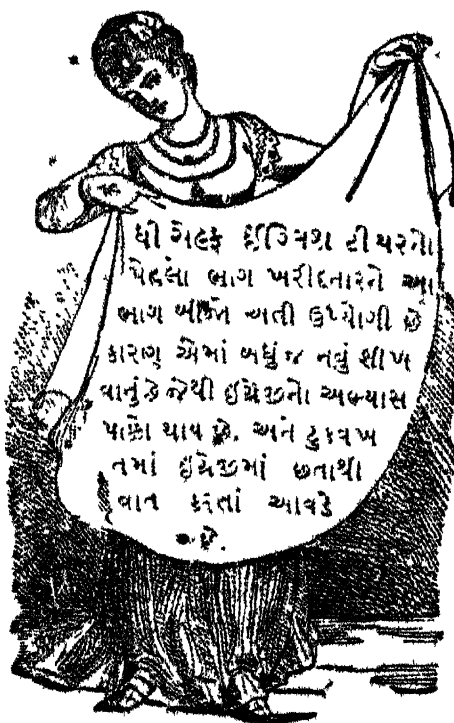 ધી સેલ્ફ ઈંગ્લિશ ટીચરનો
પેહલા ભાગ ખરીદનારને આ
ભાગ બીજો અતી ઉપયોગી છે
કારણ એમાં બધું જ નવું શીખ
વાનું છે જેથી ઇંગ્રેજીનો અભ્યાસ
પાકો થાય છે. અને ટુકવખ
તમાં ઇંગ્રેજીમાં છતાથી
વાત કરતાં આવડે
છે.